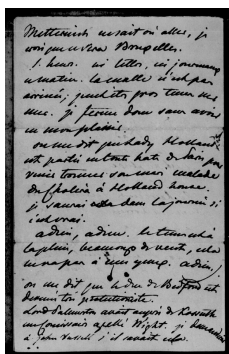 Metternich ne sait où aller, je
crois que ce sera Bruxelles.
1. heure. ni lettre, ni journaux
ce matin. la malle n'est pas
arrivée; peut être pour tenir mes
mes. je ferme donc sans avoir
eu mon plaisir.
on me dit que Lady Holland
est partie en toute hâte de Paris pour
venir trouver son mari malade
de choléra à Holland house.
je saurai cela dans la journée si
c'est vrai.
adieu, adieu. le temps est à
la pluie, beaucoup de vent, cela
ne va pas à mes yeux. adieu,
on me dit que le duc de Bedford est
devenu protectionniste.
Lord Palmerston avait auprès de Kossuth
un commissaire appelé Wight. je demanderai
à John Russell s'il avait cela.